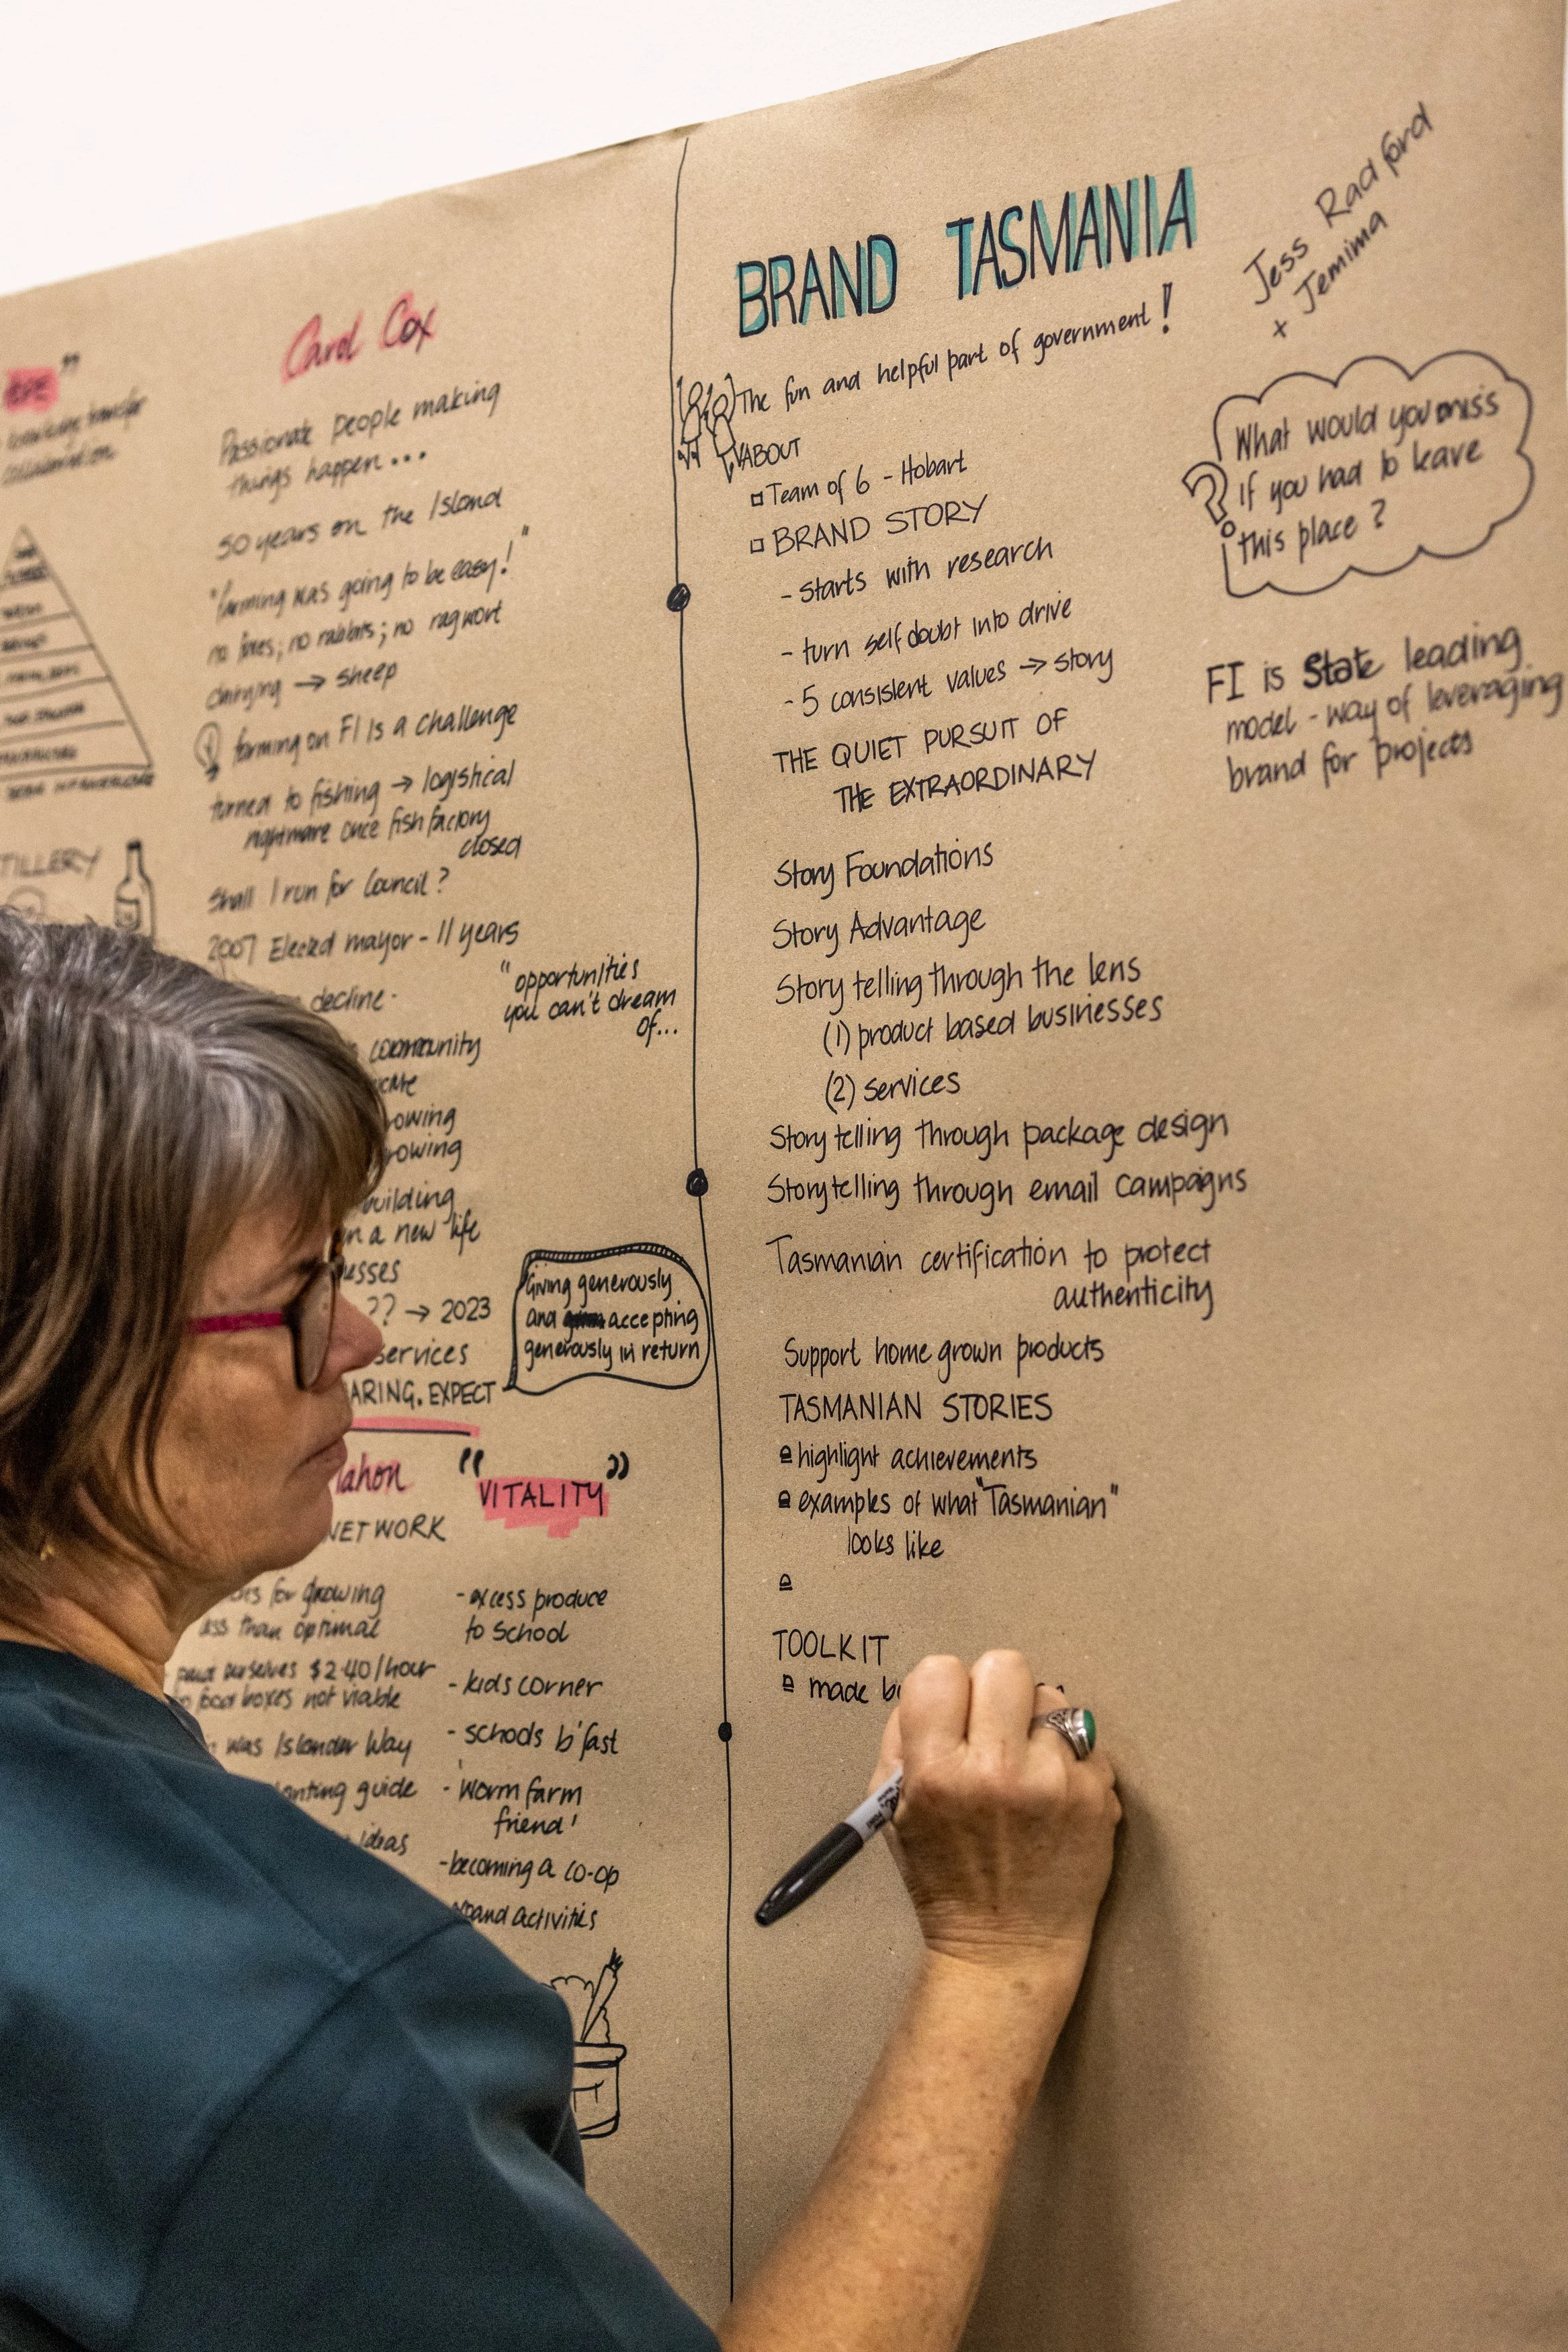 Carol Cox
Passionate people making
things happen...
50 years on the Island
"farming was going to be easy!"
no foxes; no rabbits; no ragwort
dairying → sheep
farming on FI is a challenge
turned to fishing → logistical
nightmare once fish factory
closed
Shall I run for Council?
2007 Elected mayor - 11 years
decline
"opportunities
you can't dream
of...
community
building
a new life
?? → 2023
services
EXPECT
Giving generously
and accepting
generously in return
"VITALITY"
NETWORK
for growing
less than optimal
ourselves $2.40/hour
boxes not viable
was Islander Way
planting guide
ideas
- excess produce
to school
- kids corner
- schools b'fast
- 'worm farm
friend'
- becoming a co-op
activities
TILLERY
BRAND TASMANIA
Jess Radford
+ Jemima
The fun and helpful part of government!
ABOUT
Team of 6 - Hobart
BRAND STORY
- starts with research
- turn self doubt into drive
- 5 consistent values → story
THE QUIET PURSUIT OF
THE EXTRAORDINARY
Story Foundations
Story Advantage
Story telling through the lens
(1) product based businesses
(2) services
Story telling through package design
Storytelling through email campaigns
Tasmanian certification to protect
authenticity
Support home grown products
TASMANIAN STORIES
highlight achievements
examples of what "Tasmanian"
looks like
TOOLKIT
made
What would you miss
if you had to leave
this place?
?
FI is State leading
model - way of leveraging
brand for projects